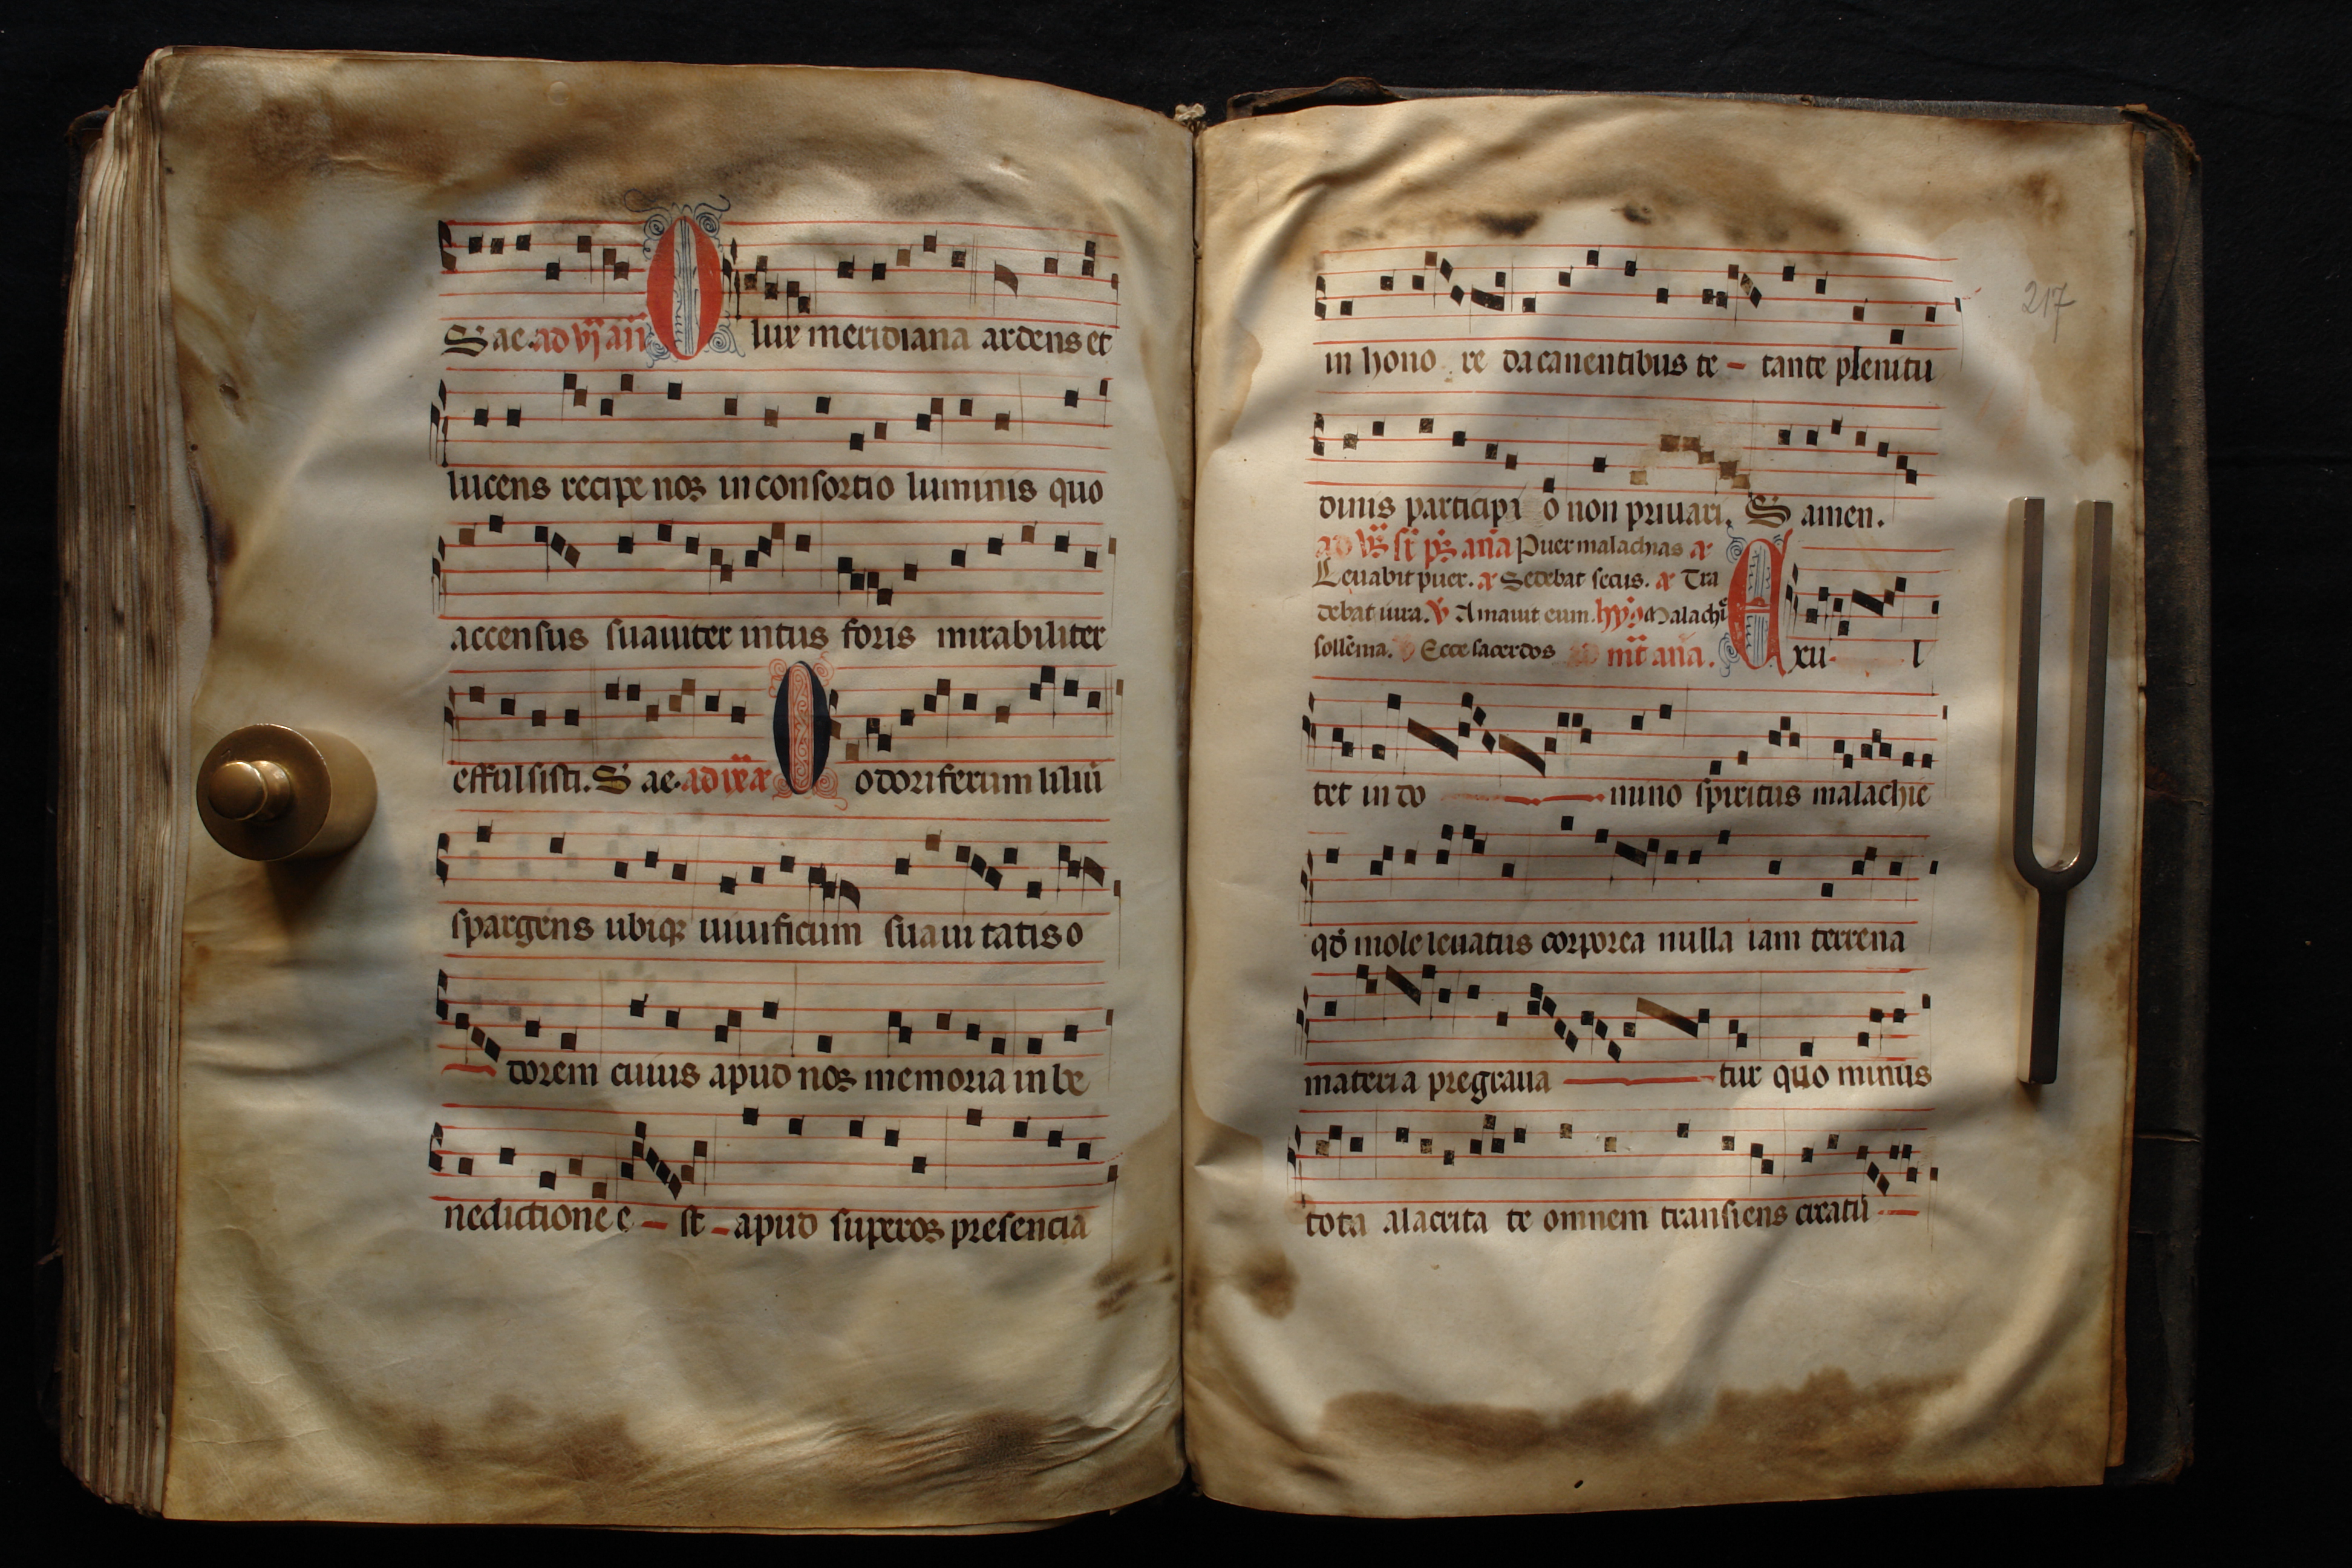 S ae. ad vj añ O lux meridiana ardens et
lucens recipe nos in consortio luminis quo
accensus suauiter intus foris mirabiliter
effulsisti. S ae. ad O odoriferum liliū
spargens ubiqꝫ uiuificum suaui tatis o
dorem cuius apud nos memoria in be
nedictione e st apud superos presencia
217
in hono re da canentibus te tante plenitu
dinis participi o non priuari. S amen.
Puer malachias a
Leuabit puer. a Sedebat secus. a Tra
debat iura. ℣ Amauit eum. hȳ Malachie
sollēnia. Ecce sacerdos m̄ aña. Axu l
tet in do mino spiritus malachie
qd̄ mole leuatus corporea nulla iam terrena
materia pregraua tur quo minus
tota alacrita te omnem transiens creatu